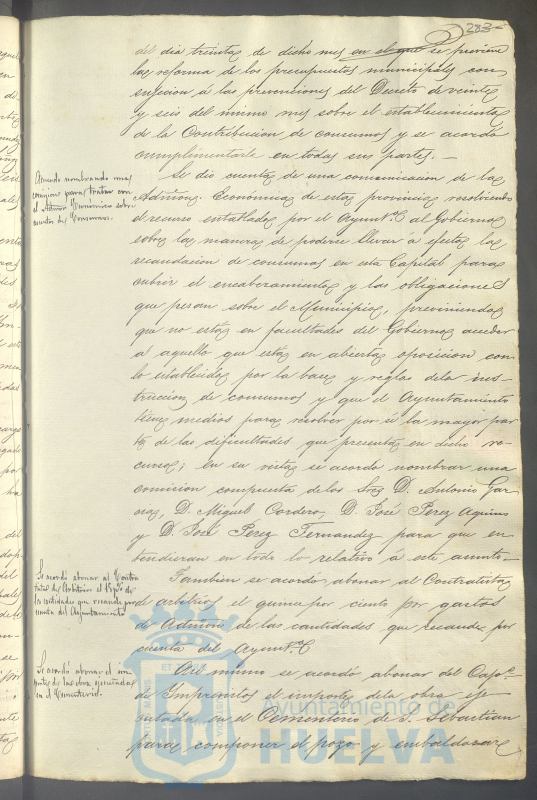 283
del dia treinta de dicho mes en el que se previene
la reforma de los presupuestos municipales con
sujecion a las prevenciones del Decreto de veinte
y seis del mismo mes sobre el establecimiento
de la Contribucion de consumos y se acordó
cumplimentarle en todas sus partes. —
Acuerdo nombrando una
comision para tratar con
el Económico sobre
asuntos de Consumos.
Se dio cuenta de una comunicacion de la
Admon. Economica de esta provincia resolviendo
el recurso entablado por el Ayuntº al Gobierno
sobre la manera de poderse llevar a efecto la
recaudacion de consumos en esta Capital para
cubrir el encabezamiento y las obligaciones
que pesan sobre el Municipio, previniendo
que no está en facultades del Gobierno acceder
á aquello que está en abierta oposicion con
lo establecido por la bases y reglas dela ins-
truccion de consumos y que el Ayuntamiento
tiene medios para resolver por si la mayor par
te de las dificultades que presenta en dicho re-
curso; en su vista se acordó nombrar una
comision compuesta de los Sres D. Antonio Gar
cia, D. Miguel Cordero, D. José Perez Aquino
y D. José Perez Fernandez para que en
tendieran en todo lo relativo á este asunto—
Se acordó abonar al Contra
tista de Arbitrios el 15 pº de
las cantidades que recaude por
cuenta del Ayuntamiento
Tambien se acordó abonar al Contratista
de arbitrios el quince por ciento por gastos
de Admon de las cantidades que recaude por
cuenta del Ayuntº
Se acordó abonar el im
porte de la obra ejecutada
en el Cementerio.
Asi mismo se acordó abonar del Capº
de Imprevistos el importe dela obra eje
cutada en el Cementerio de S. Sebastian
para componer el pozo y embaldosar
Ayuntamiento de
HUELVA